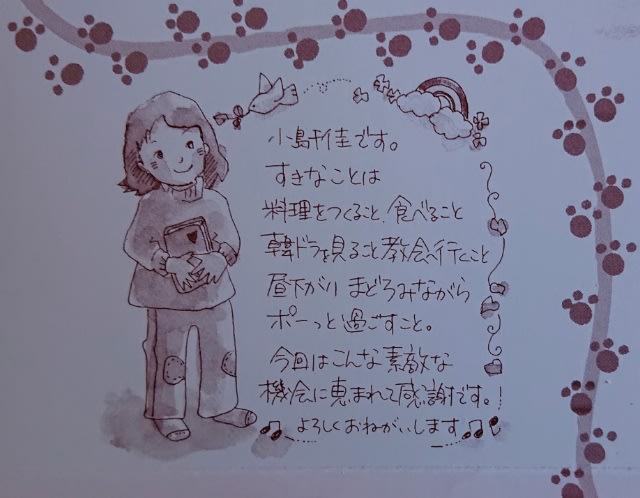 小島千佳です。
すきなことは
料理をつくること、食べること
韓ドラを見ること教会へ行くこと
昼下がり まどろみながら
ボーっと過ごすこと。
今回はこんな素敵な
機会に恵まれて感謝です。!
よろしくおねがいします